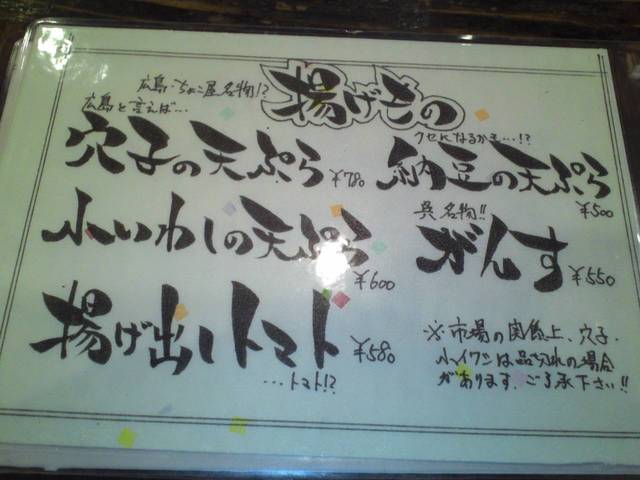 揚げもの
広島・ちょこ屋名物!?
広島と言えば…
穴子の天ぷら ¥780
クセになるかも…!?
納豆の天ぷら ¥500
小いわしの天ぷら ¥600
呉名物!!
がんす ¥550
揚げ出しトマト ¥580
…トマト!?
※市場の関係上、穴子・
小イワシは品切れの場合
があります。ご了承下さい!!